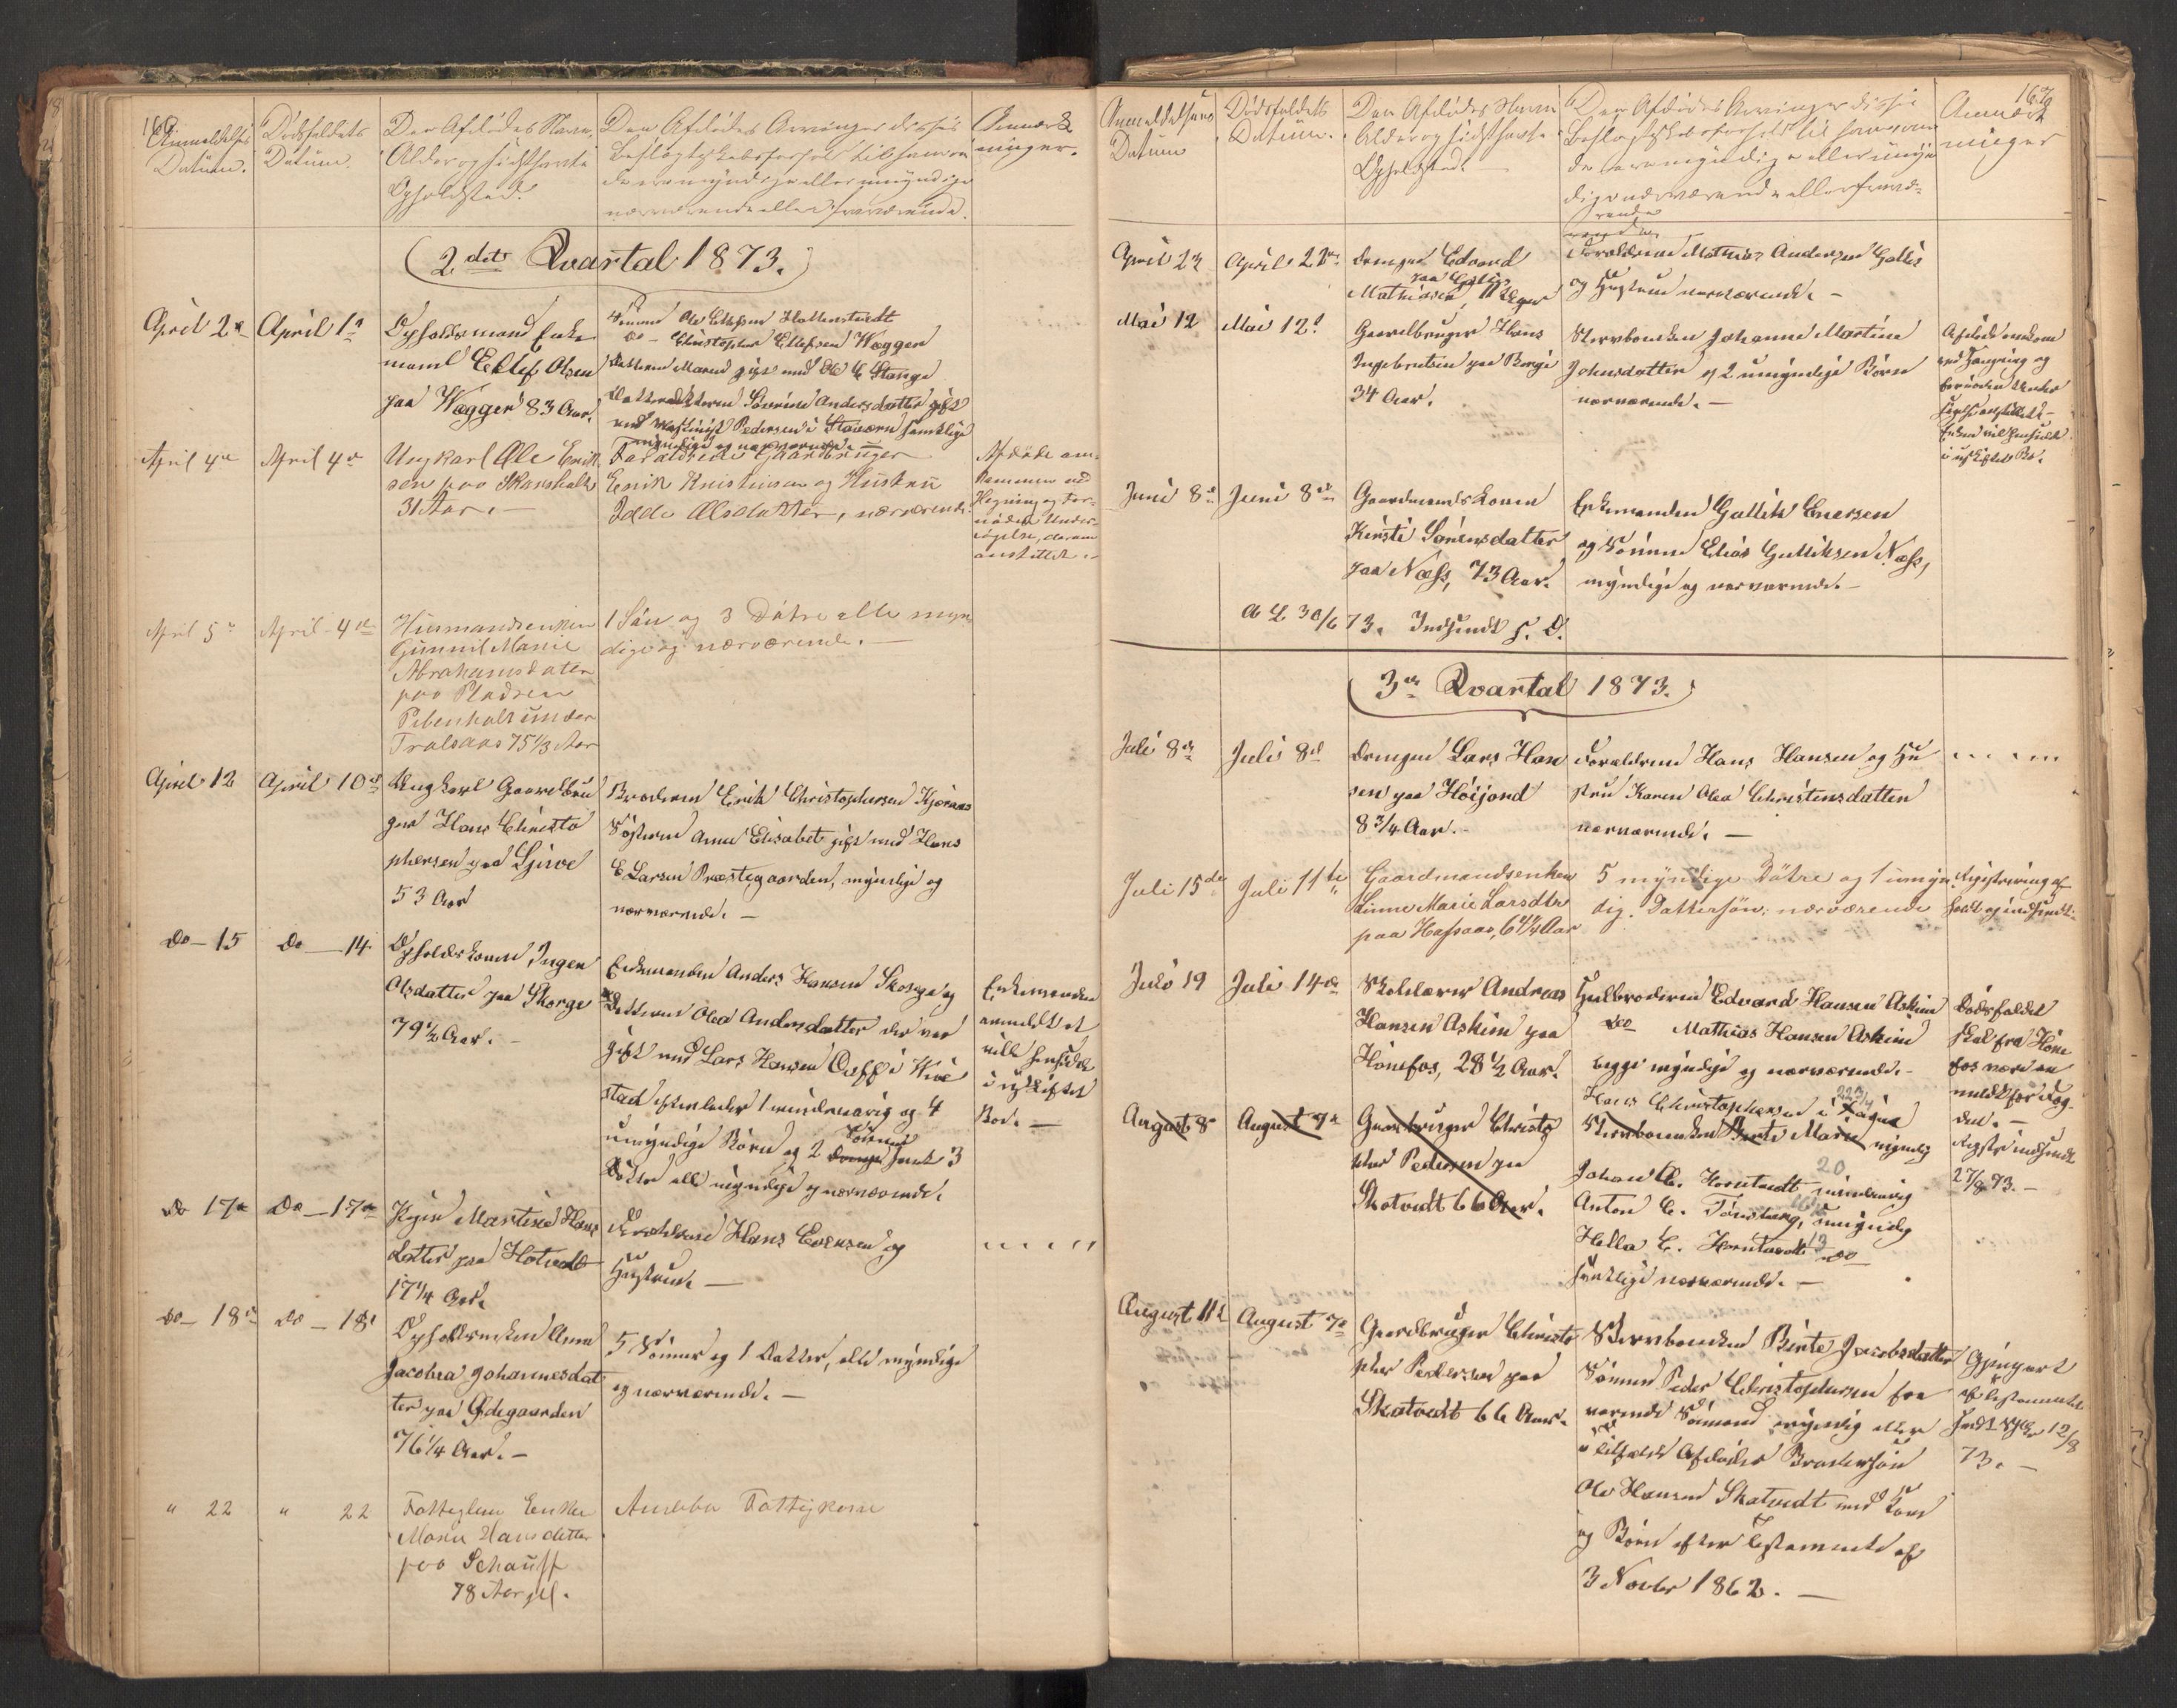 166
Anmeldelses
Datum.
Dødsfaldets
Datum.
Den Afdødes Navn,
Alder og sidsthavte
Opholdsted.
Den Afdødes Arvinger disses
Beslægtskabsforhold til ham om
de ere myndige eller umyndige
nærværende eller fraværende.
Anmærk
ninger.
2det Qvartal 1873.
April 2
April 1
Opholdsmand Enke
mand Ellef Olsen
paa Wegger 83 Aar.
Sønnen Ole Ellefsen Hallenstvedt
do – Christopher Ellefsen Wegger
Datteren Maren gift med Ole E Stange
Datterdatteren Severine Andersdatter gift
med Pedersen i Stavern samtlige
myndige og nærværende
April 4
April 4
Ungkarl Ole Erik
sen paa Skarsholt
31 Aar.
Forældrene Gaardbruger
Erik Knutsen og Hustru
Olsdatter, nærværende.
Afdøde om-
kommen ved
Hegning og for-
nøden Under-
søgelse, derom
anstillet.
April 5
April 4
Husmandsenken
Gunnil Marie
Abrahamsdatter
paa Pladsen
under
Tralsaas 75 1/3 Aar
1 Søn og 3 Døtre alle myn
dige og nærværende.
April 12
April 10
Ungkarl Gaardbru
ger Hans Christo
phersen paa
53 Aar
Broderen Erik Christophersen Hjernaas
Søsteren Anne Elisabet gift med Hans
E Larsen Præstegaarden, myndige og
nærværende. –
Do – 15
Do – 14
Opholdskonen Inger
Olsdatter paa Skorge
79 1/2 Aar. –
Enkemanden Anders Hansen Skorge og
Datteren Olea Andersdatter der var
gift med Lars Hansen i
stad efterlader 1 mindreaarig og 4
umyndige Børn og 2 Sønner samt 3
Døtre alle myndige og nærværende.
Enkemanden
anmeldt at
ville hensidde
i uskiftet
Bo. –
Do 17
Do – 17
Pigen Martine Hans
datter paa Hotvedt
17 1/4 Aar.
Forældrene Hans Evensen og
Hustru. –
Do – 18
Do – 18
Opholdsenken Anne
Jacobea Johannesdat
ter paa Ødegaarden
76 1/4 Aar. –
5 Sønner og 1 Datter, alle myndige
og nærværende. –
" 22
" 22
Fattiglem Enke
Maria Hansdatter
paa Schauff
78 Aar gl.
Fattigkom
167
Anmeldelsens
Datum
Dødsfaldets
Datum.
Den Afdødes Navn
Alder og sidsthavte
Opholdsted.
Den Afdødes Arvinger disses
Beslægtskabsforhold til ham om
de ere myndige eller umyn
dige nærværende eller fravæ-
rende
Anmærk
ninger
April 23
April 22
Drengen Edvard
Mathiasen, 11 Uger
Forældrene Mathias Andersen Gallis
og Hustru nærværende. –
Mai 12
Mai 12
Gaardbruger Hans
Ingebretsen paa Berge
34 Aar.
Stervboenken Johanne Martine
Johnsdatter og 2 umyndige Børn
nærværende. –
Afdød omkom
ved Hængning og
fornøden Under
søgelse anstillet. –
Enken vil hensidde
i uskiftet Bo.
Juni 8
Juni 8
Gaardmandskonen
Kirsti Sørensdatter
paa Næss, 73 Aar.
Enkemanden Gullik Enersen
og Sønnen Elias Gulliksen Næss,
myndige og nærværende. –
30/6 73. Indsendt S. D.
3die Qvartal 1873.
Juli 8
Juli 8
Drengen Lars Han
sen paa Høijord
8 3/4 Aar. –
Forældrene Hans Hansen og Hu
stru Karen Olea Christensdatter
nærværende. –
Juli 15de
Juli 11te
Gaardmandsenken
Linne Marie Larsdtr
paa Hafsaas, 64 1/4 Aar
5 myndige Døtre og 1 umyn
dig Dattersøn, nærværende
Registrering af
holdt og indsendt.
Juli 19
Juli 14
Skolelærer Andreas
Hansen Askim paa
Hønefos, 28 1/2 Aar.
Helbroderen Edvard Hansen Askim
do Mathias Hansen Askim
begge myndige og nærværende. –
Dødsfaldet
skal fra Høne
fos være an
meldt for Fog
den. –
Registr indsendt
27/8 73. –
August 8
August 7
Gaardbruger Christo
pher Pedersen paa
Skatvedt 66 Aar.
Hans Christophersen i
22 3/4
Stervboenken Berte Marie myndig
Johan C. Horntvedt mindreaarig
20
Anton C. Tønsberg, umyndig
Hella C. Horntvedt do
13
samtlige nærværende. –
August 11
August 7
Gaardbruger Christo
pher Pedersen paa
Skatvedt 66 Aar.
Stervboenken Berte Jacobsdatter
Sønnen Peder Christophersen fra
værende Sømand myndig eller
i tilfælde Afdødes Brodersøn
Ole Hansen Skatvedt med Kone
og Børn efter Testamente af
3 Novbr 1862. –
Gjenpart
af Testamentet
12/8
73. –